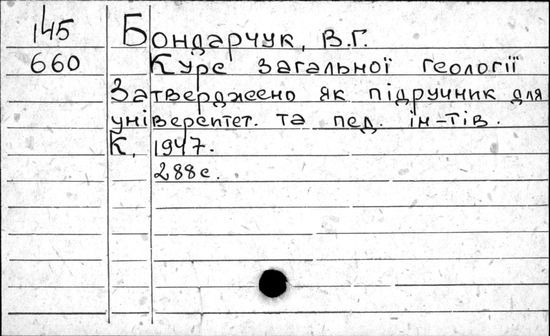 145 Бондарчук, В.Г.
660 Курс загальної геології
Затверджено як підручник для
університет. та пед. ін-тів.
К, 1947.
288с.